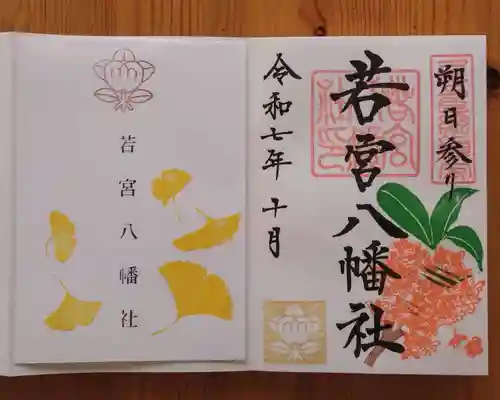 若宮八幡社
朔日参り
若宮八幡社
令和七年十月